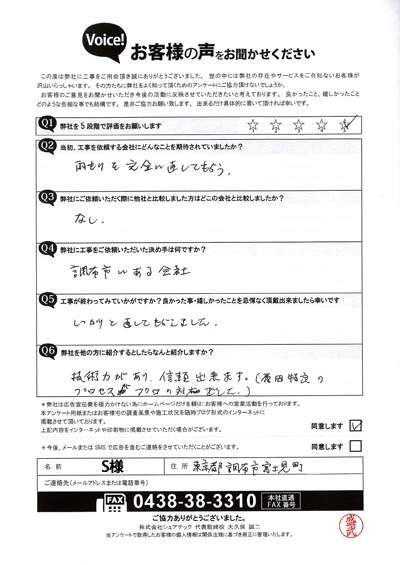 Voice!
お客様の声をお聞かせください
この度は弊社に工事をご用命頂き誠にありがとうございました。世の中には弊社の存在やサービスをご存知ないお客様が
沢山いらっしゃいます。その方たちに弊社をよく知って頂くためのアンケートにご協力頂けないでしょうか。
お客様のご意見をお聞かせいただき今後の活動に反映させていただきたいと考えております。良かったこと、嬉しかったこと
どのような些細な事でも結構です。是非ご協力お願い致します。出来るだけ具体的に書いて頂ければ幸いです。
Q1 弊社を5段階で評価をお願いします ☆ ☆ ☆ ☆ ☆
Q2 当初、工事を依頼する会社にどんなことを期待されていましたか?
雨もりを完全に直してもらう。
Q3 弊社にご依頼いただく際に他社と比較しました方はどこの会社と比較しましたか?
なし.
Q4 弊社に工事をご依頼いただいた決め手は何ですか?
調布市にある会社
Q5 工事が終わってみていかがですか?良かった事・嬉しかったことを忌憚なく頂戴出来ましたら幸いです
しっかりと直してもらいました.
Q6 弊社を他の方に紹介するとしたらなんと紹介しますか?
技術力があり、信頼出来ます。(原因特定の
プロセス プロの対応でした.)
*弊社は広告宣伝費を極力かけない為にホームページだけを頼りにお客様への営業活動を行っております。
本アンケート用紙またはお客様宅の調査風景や施工状況を随時ブログ形式のインターネットに
掲載させて頂いております。
上記内容をインターネットや印刷物に掲載させていただく場合がございます。 同意します
*今後、メールまたはSMSで広告を含むご連絡をさせていただくことがございます。 同意します
名前 S様 住所 東京都調布市富士見町
ご連絡先(メールアドレスまたは電話番号)
FAX 0438-38-3310 本社直通 FAX番号
ご協力ありがとうございました。
株式会社シェアテック 代表取締役 大久保 誠二
当アンケートで取得したお客様の個人情報は関係法規に基づき厳正に管理いたします。